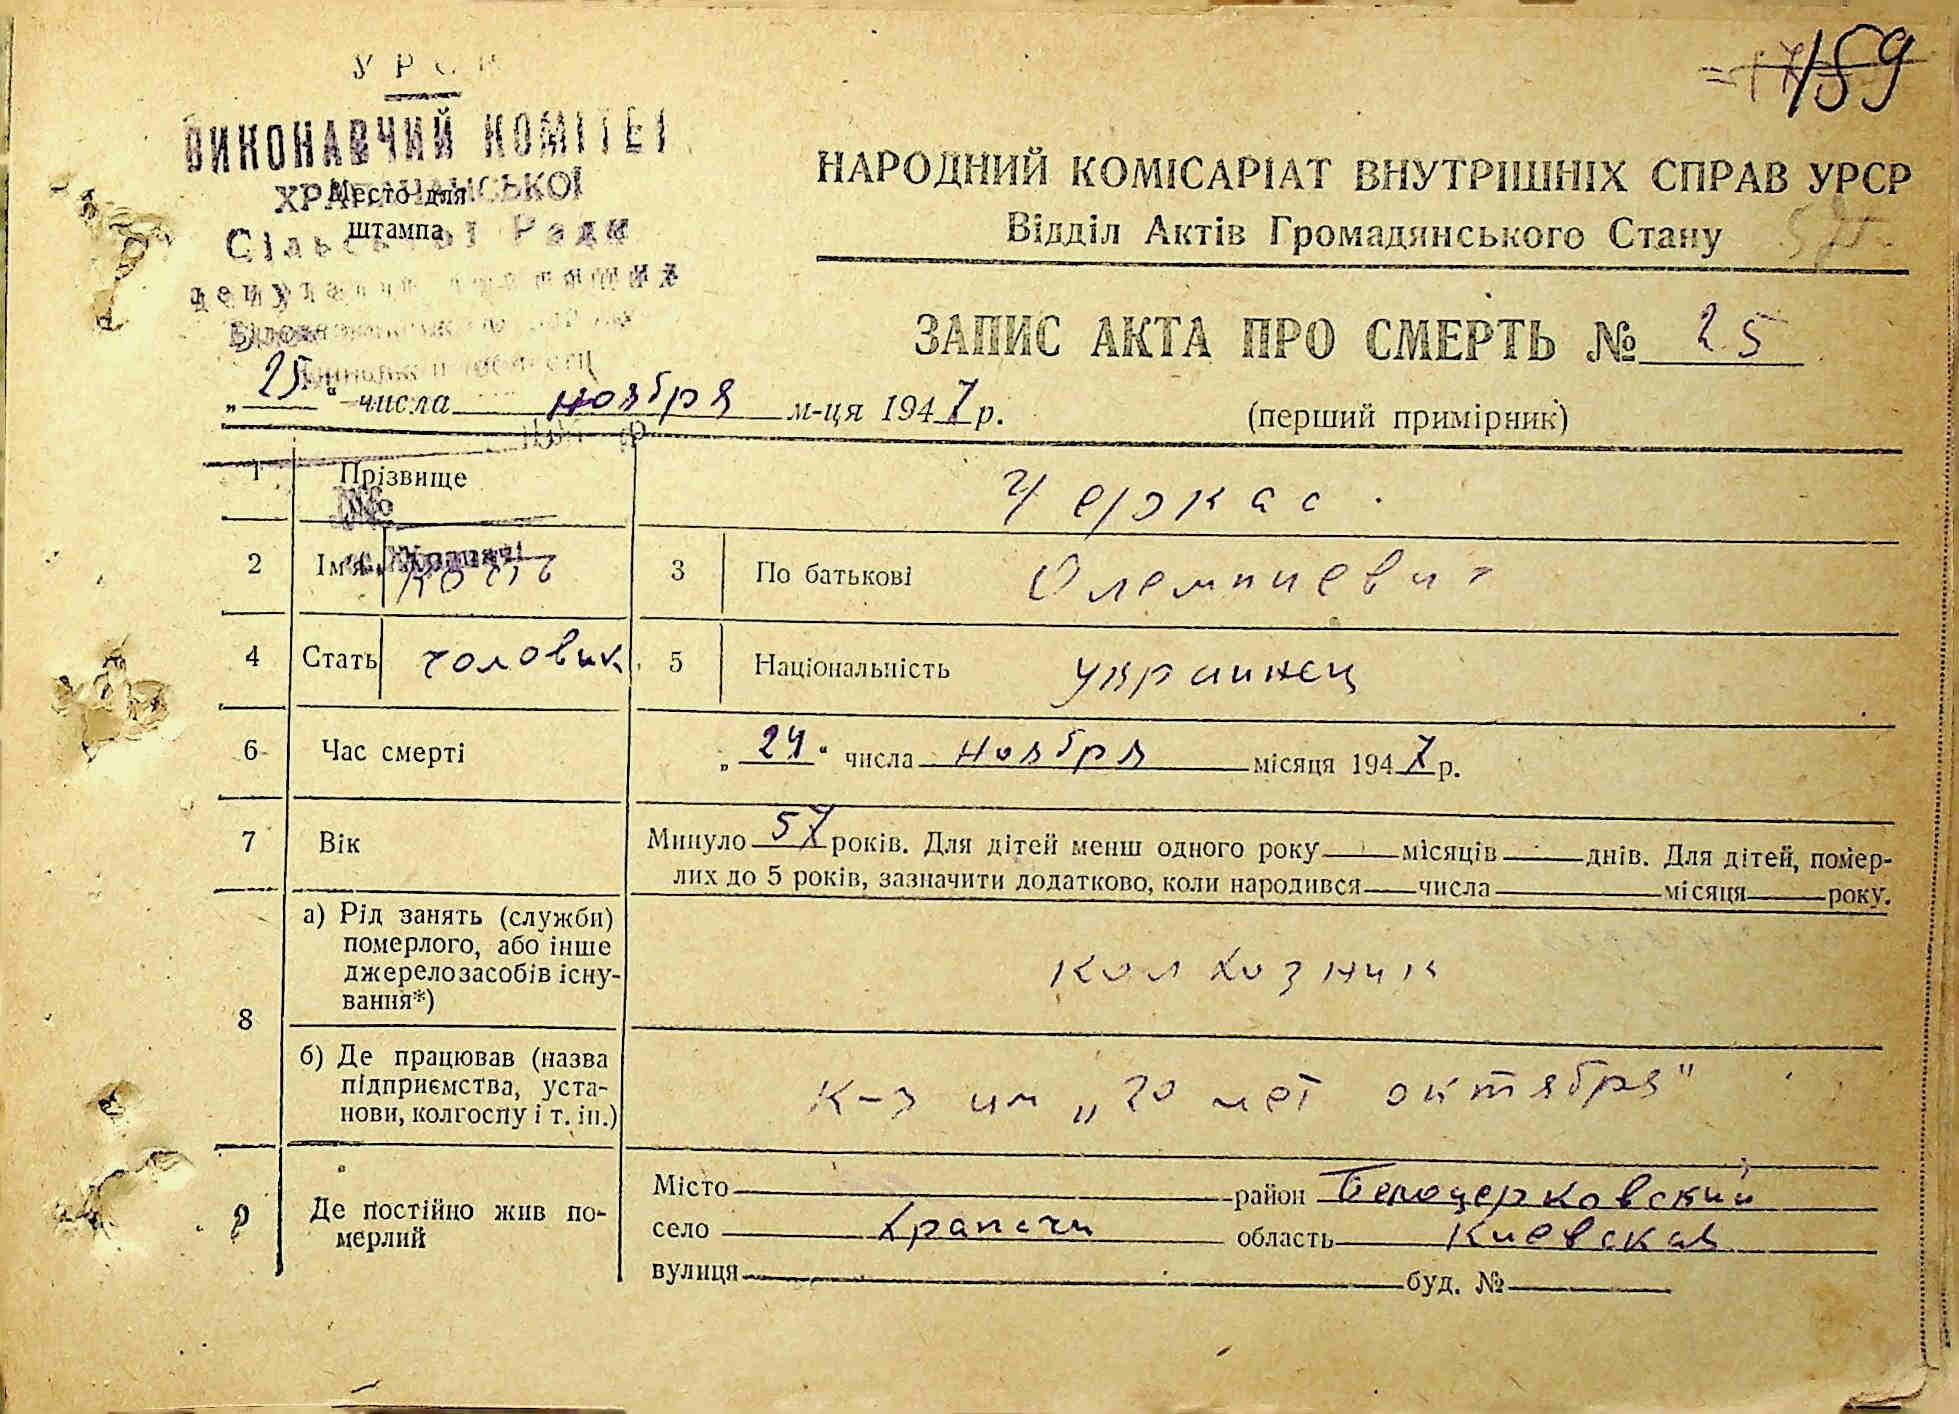 УРСР
159
ВИКОНАВЧИЙ КОМІТЕТ
Место для
штампа
НАРОДНИЙ КОМІСАРІАТ ВНУТРІШНІХ СПРАВ УРСР
Відділ Актів Громадянського Стану
ЗАПИС АКТА ПРО СМЕРТЬ № 25
„25“ числа ноября м-ця 1947 р.
(перший примірник)
1 Прізвище Черкас
2 Ім'я 3 По батькові Олемпиевич
4 Стать чоловик 5 Національність украинец
6 Час смерті „24“ числа ноября місяця 1947 р.
7 Вік Минуло 57 років. Для дітей менш одного року місяців днів. Для дітей, помер-
лих до 5 років, зазначити додатково, коли народився числа місяця року.
8 а) Рід занять (служби)
померлого, або інше
джерело засобів існу-
вання*)
колхозник
б) Де працював (назва
підприємства, уста-
нови, колгоспу і т. ін.)
к-з им „20 лет октября"
9 Де постійно жив по-
мерлий
Місто район Белоцерковский
село Храпачи область Киевская
вулиця буд. №